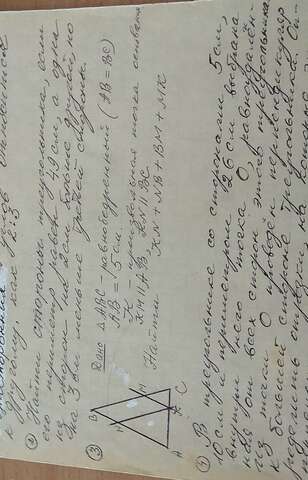 к другому, как 2:3
② Найти стороны треугольника, если
его периметр равен 49 см, а одна
из сторон на 2 см больше другой и
на 3 см меньше третьей стороны.
③
B
N
M
A
K
C
Дано: △ABC - равнобедренный (AB = BC)
AB = 5 см.
K - произвольная точка основания
KM || AB, KN || BC
Найти: KN + NB + BM + MK
④ В треугольнике со сторонами 5 см,
10 см и периметром 26 см выбрана
внутри него точка O, равноудалён-
ная от всех сторон этого треугольника.
Из точки O проведён перпендикуляр
к большей стороне треугольника. О-